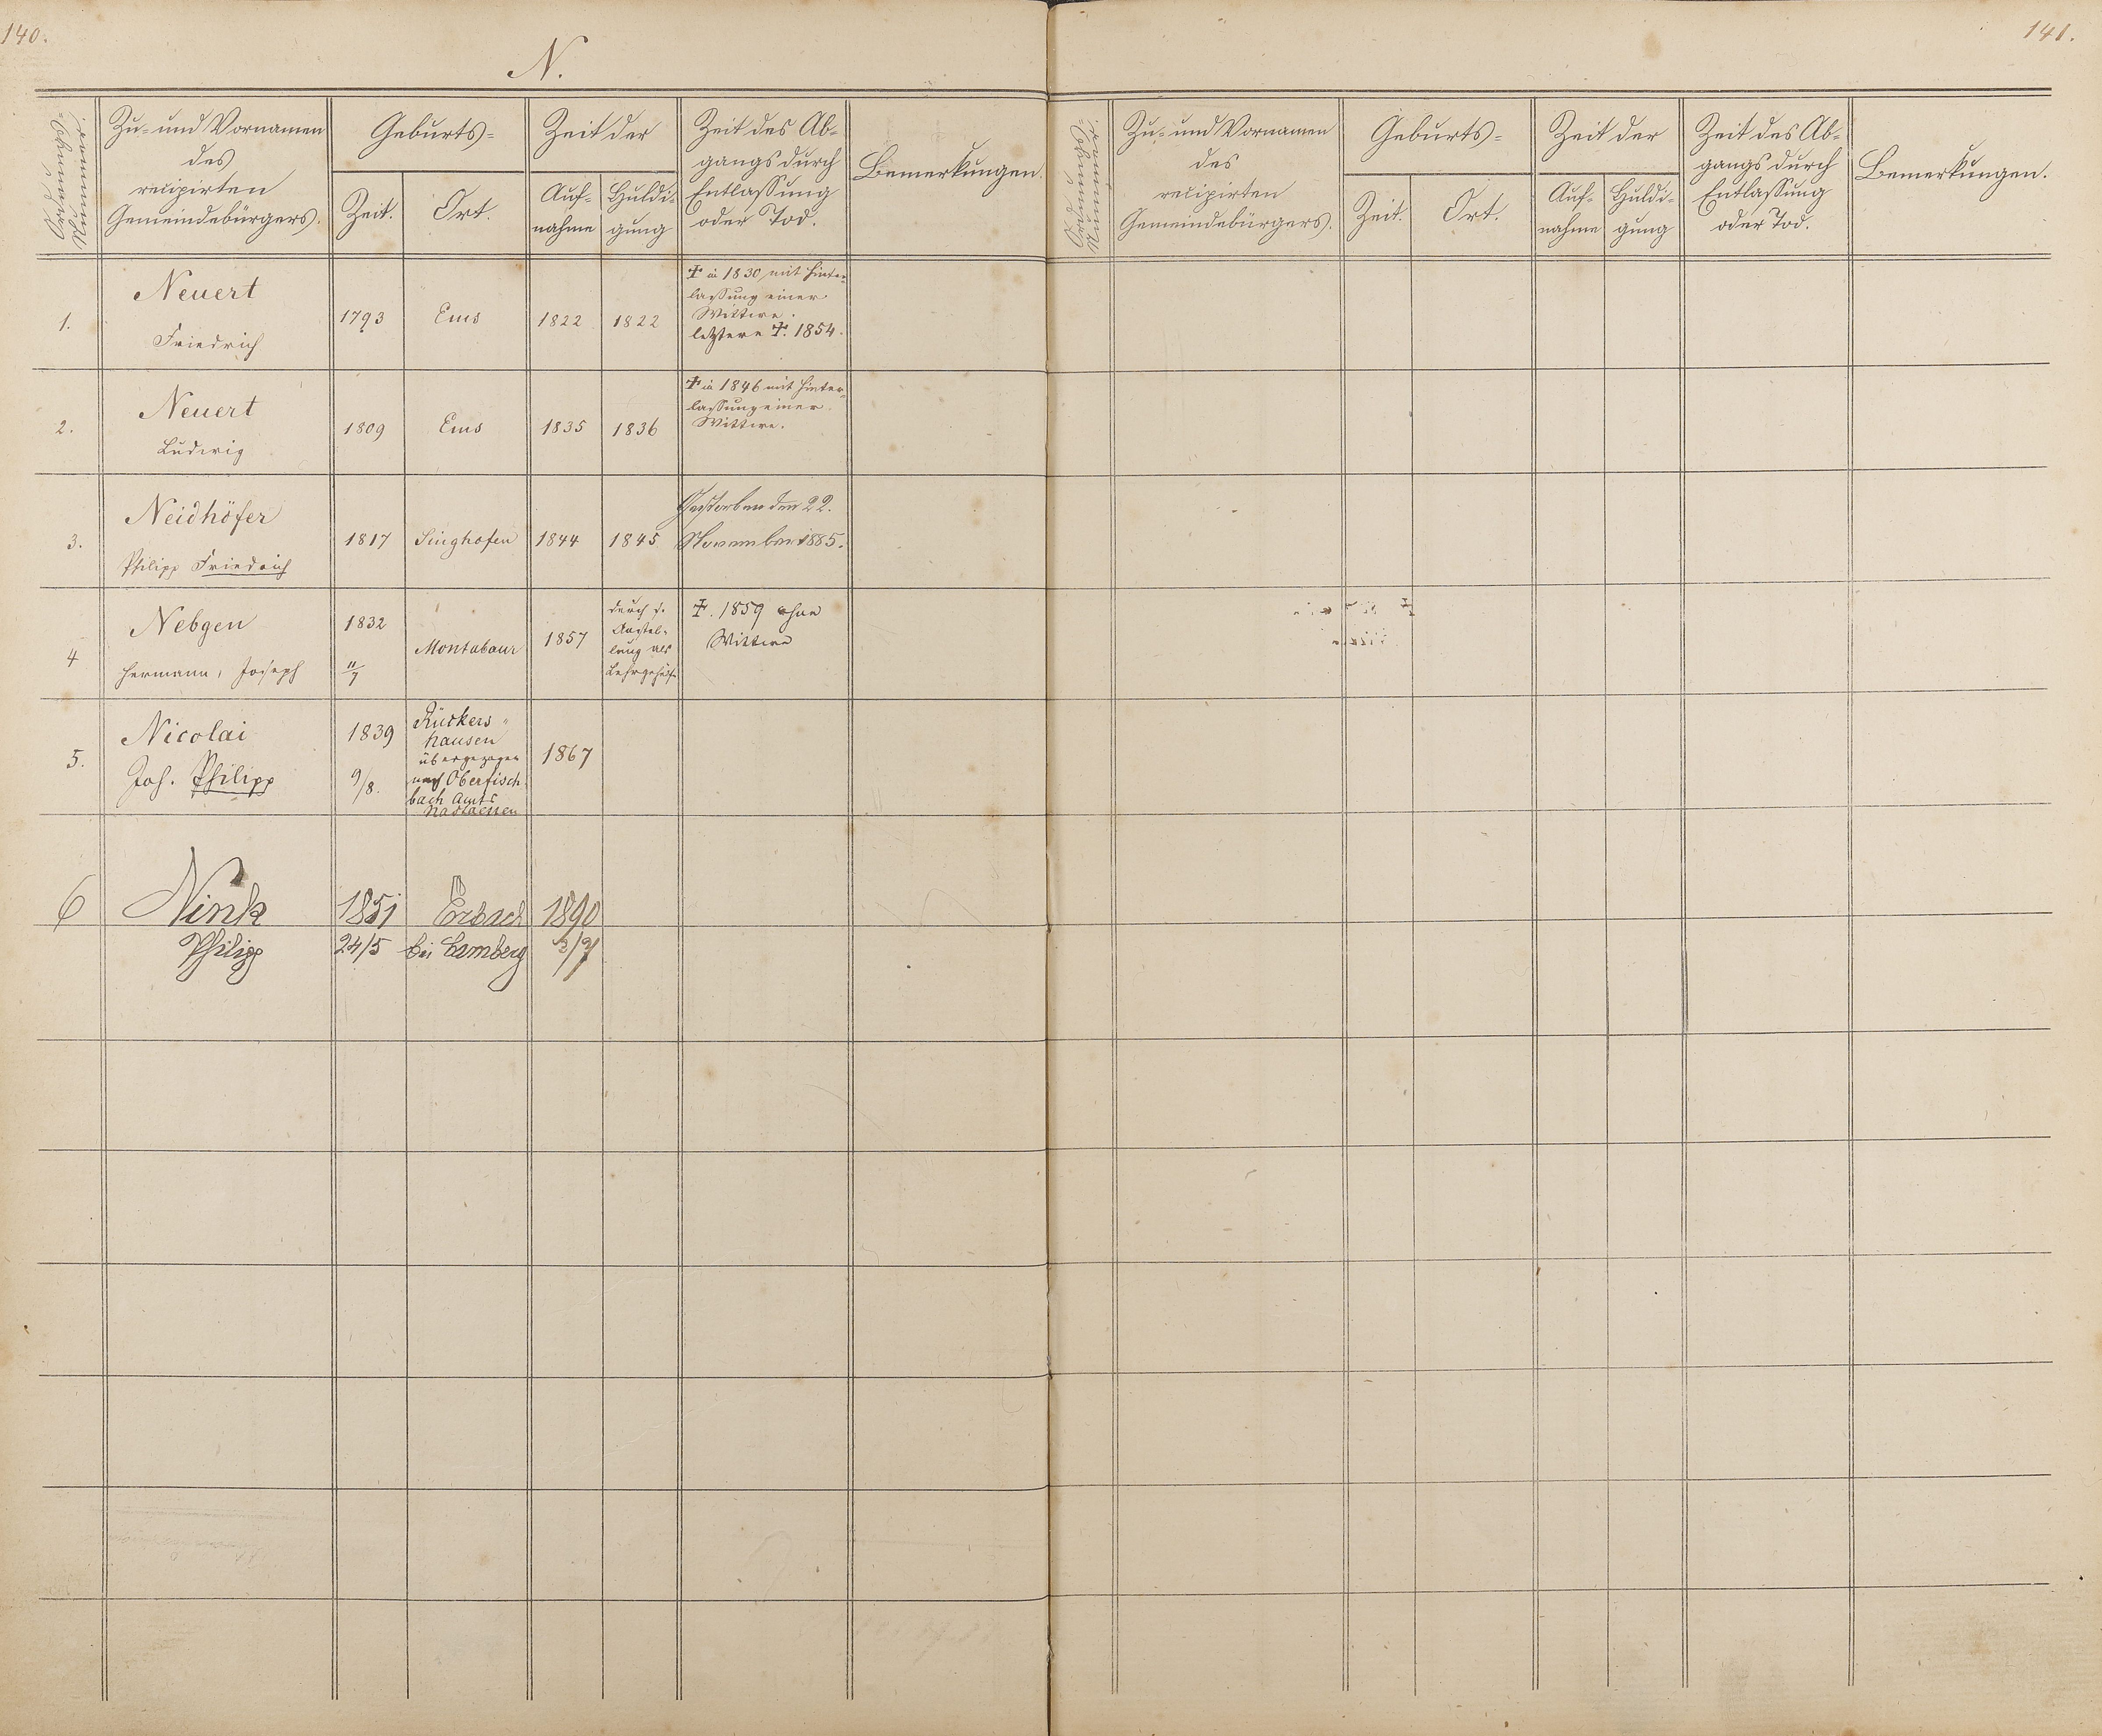 140.
N.
Ordnungs=
Nummer.
Zu- und Vornamen
des
recipirten
Gemeindebürgers.
Geburts=
Zeit.
Ort.
Zeit der
Auf-
nahme
Huldi-
gung
Zeit des Ab-
gangs durch
Entlassung
oder Tod.
Bemerkungen.
1.
Neuert
Friedrich
1793
Ems
1822
1822
† in 1830 mit Hinter-
lassung einer
Wittwe.
letztere †. 1854.
2.
Neuert
Ludwig
1809
Ems
1835
1836
† in 1846 mit Hinter-
lassung einer
Wittwe.
3.
Neidhöfer
Philipp Friedrich
1817
Singhofen
1844
1845
Gestorben den 22.
November 1885.
4
Nebgen
Hermann, Joseph
1832
11/7
Montabaur
1857
durch s.
Anstel-
lung als
Lehrgehülfe
†. 1859 ohne
Wittwe
5.
Nicolai
Joh. Philipp
1839
9/8.
Rückers-
hausen
übergezogen
nach Oberfisch-
bach Amts
Nastaetten
1867
6
Nink
Philipp
1851
24/5
Erbach
bei Camberg
1890
2/7
141.
Ordnungs=
Nummer.
Zu- und Vornamen
des
recipirten
Gemeindebürgers.
Geburts=
Zeit.
Ort.
Zeit der
Auf-
nahme
Huldi-
gung
Zeit des Ab-
gangs durch
Entlassung
oder Tod.
Bemerkungen.